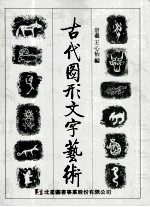 古代圖形文字藝術
王心怡 編
北星圖書事業股份有限公司